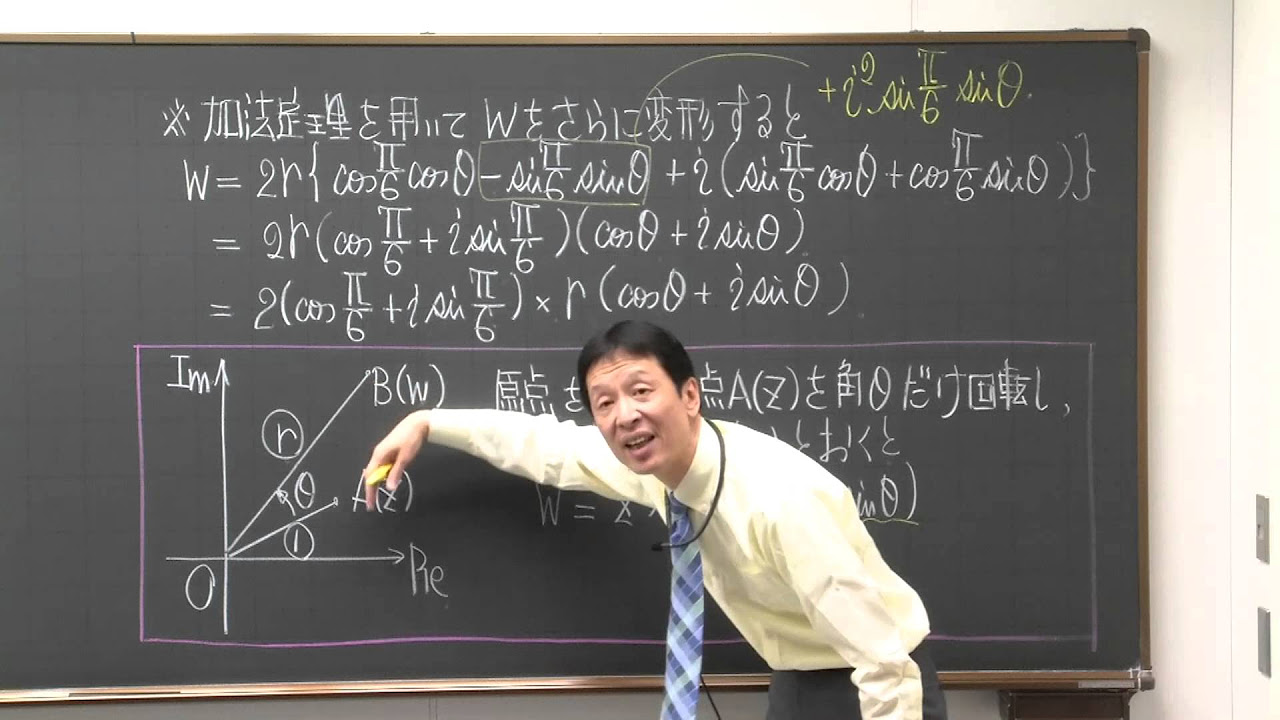 +i²sin π/6 sinθ.
※加法定理を用いてWをさらに変形すると
W=2r{cos π/6 cosθ-sin π/6 sinθ+i(sin π/6 cosθ+cos π/6 sinθ)}
=2r(cos π/6+i sin π/6)(cosθ+i sinθ)
=2(cos π/6+i sin π/6)×r(cosθ+i sinθ)
Im B(W) 原点を 点A(z)を角θだけ回転し,
r とおくと
θ A(z) W=z× sinθ)
1
O Re